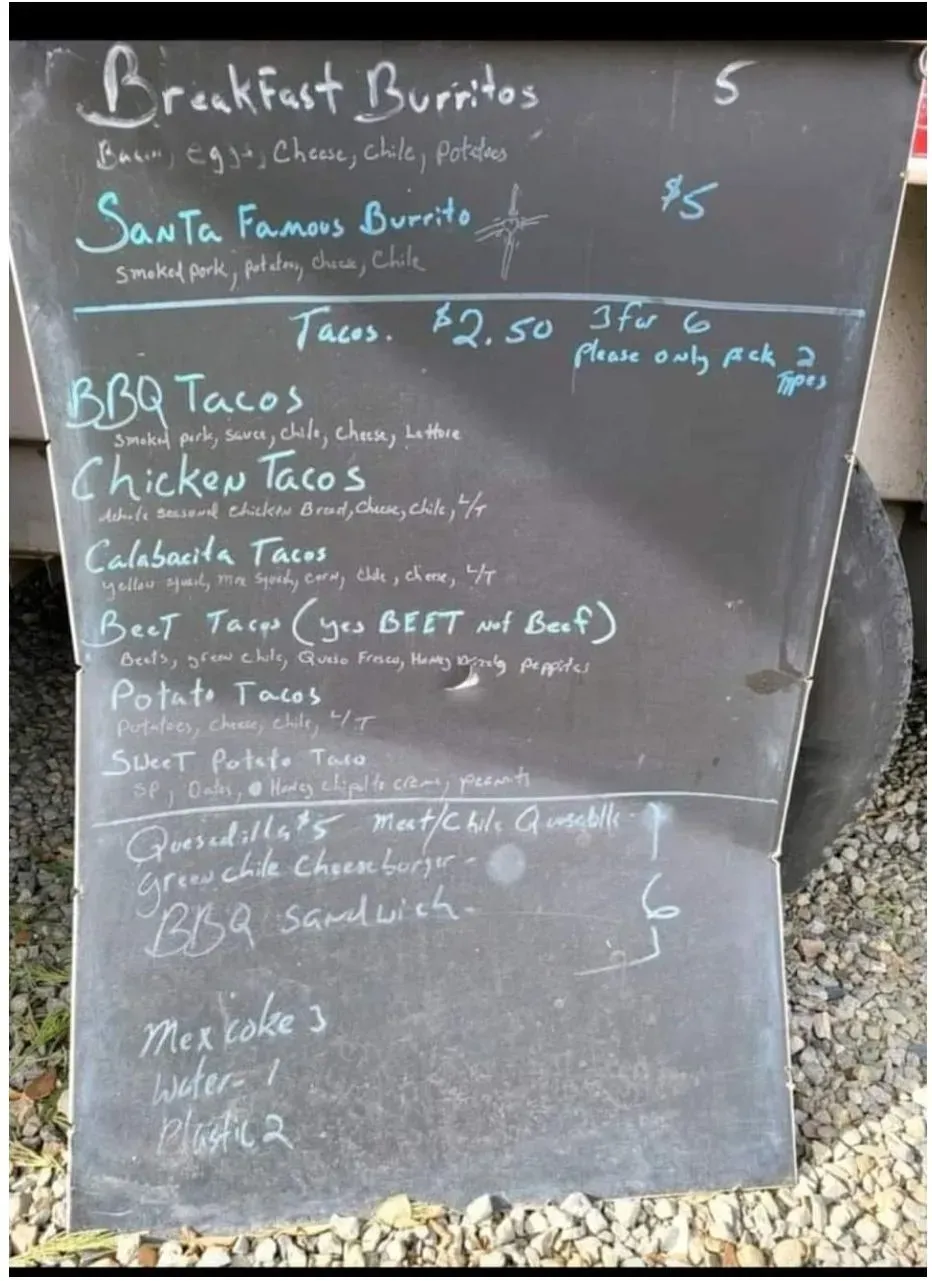 BreakFast Burritos 5
Bacon, eggs, Cheese, chile, potatoes
SanTa Famous Burrito $5
Smoked pork, potatoes, cheese, Chile
Tacos. $2.50 3 for 6
please only pick 2
Types
BBQ Tacos
Smoked pork, sauce, chile, cheese, Lettuce
Chicken Tacos
whole seasoned chicken Breast, Cheese, chile, L/T
Calabacita Tacos
yellow squash, mex squash, corn, chile, cheese, L/T
BeeT Tacos (yes BEET not Beef)
Beets, green chile, Queso Fresco, Honey
Potato Tacos
potatoes, cheese, chile, L/T
SweeT Potato Taco
SP, Dates, Honey chipotle crema, peanuts
Quesadilla $5 Meat/Chile -
green chile Cheeseburger -
BBQ sandwich - 6
Mex coke 3
water - 1
plastic 2